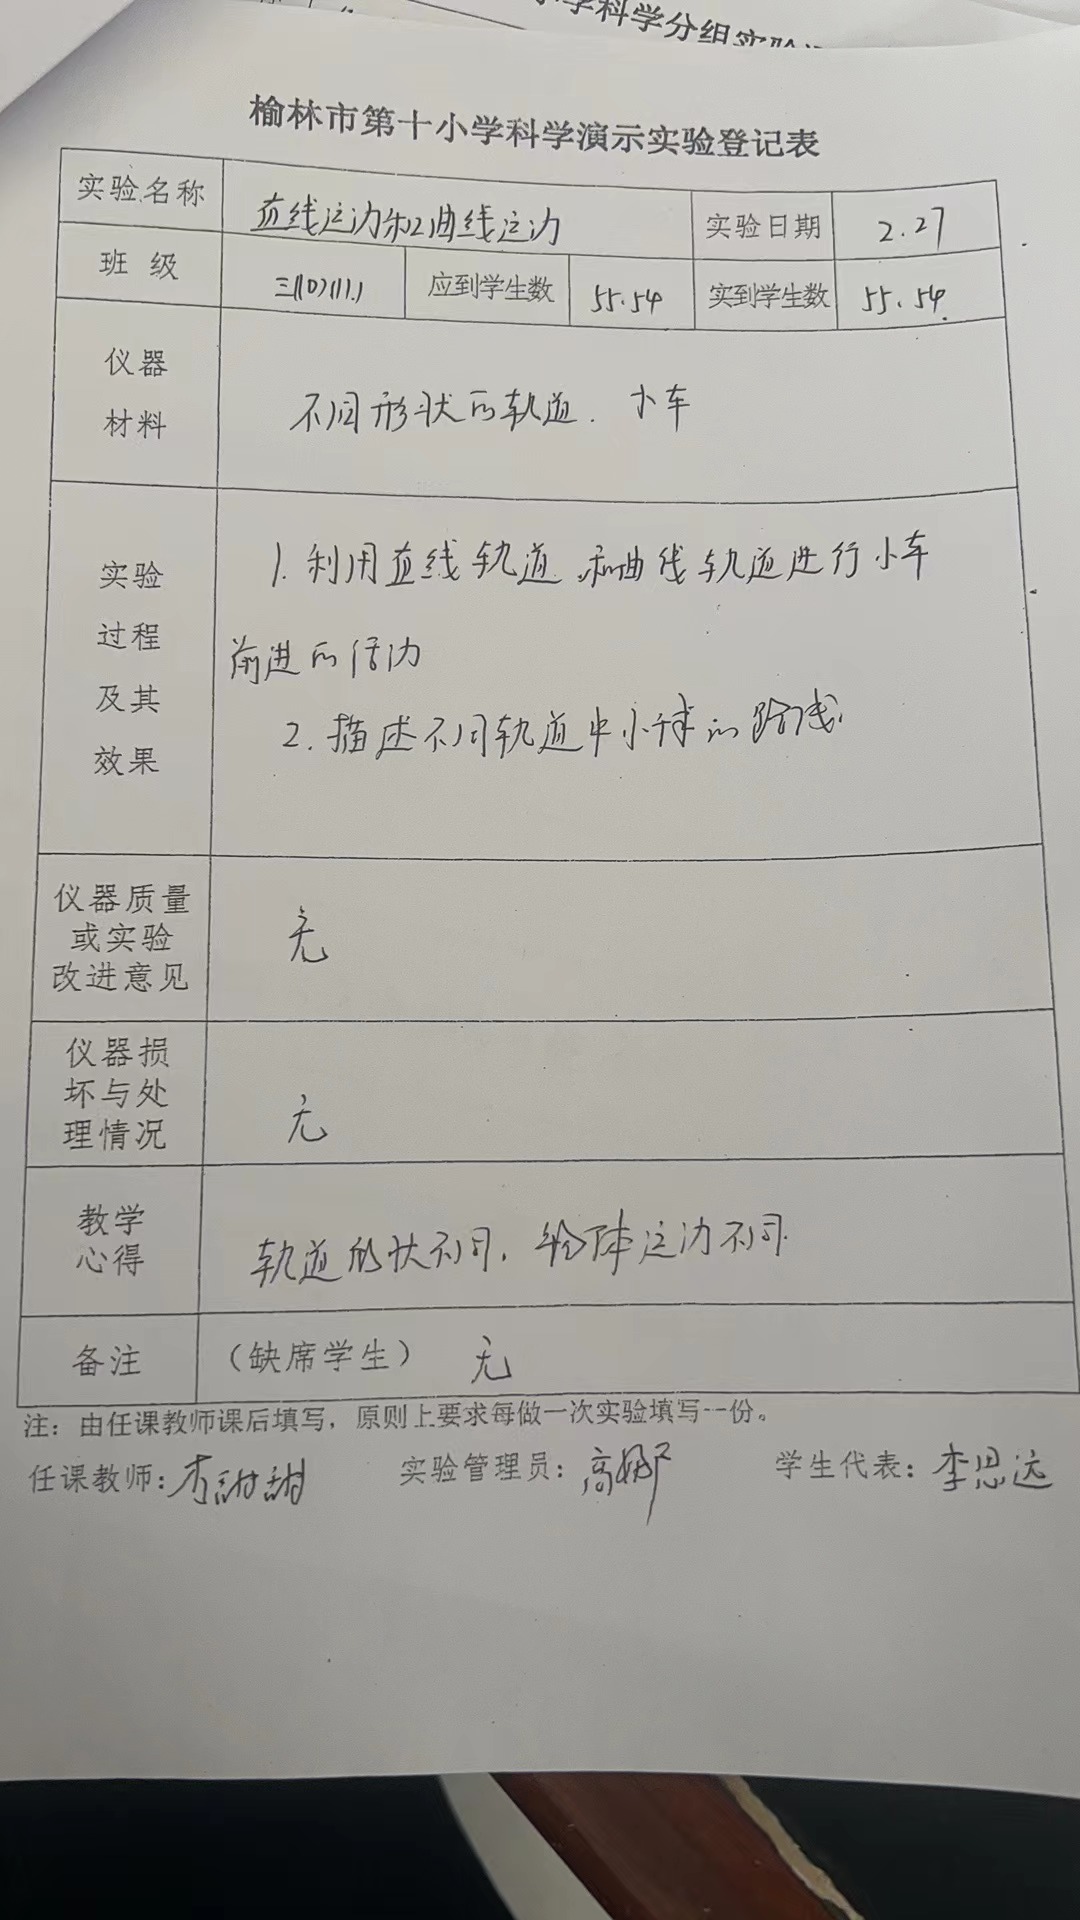 小学科学分组实验
榆林市第十小学科学演示实验登记表
实验名称 直线运动和曲线运动 实验日期 2.27
班级 三(10)(11) 应到学生数 55.54 实到学生数 55.54
仪器
材料
不同形状的轨道. 小车
实验
过程
及其
效果
1. 利用直线轨道和曲线轨道进行小车
前进的活动
2. 描述不同轨道中小球的路线.
仪器质量
或实验
改进意见
无
仪器损
坏与处
理情况
无
教学
心得
轨道形状不同, 物体运动不同.
备注 (缺席学生) 无
注: 由任课教师课后填写, 原则上要求每做一次实验填写一份。
任课教师: 李甜甜 实验管理员: 高 学生代表: 李思远